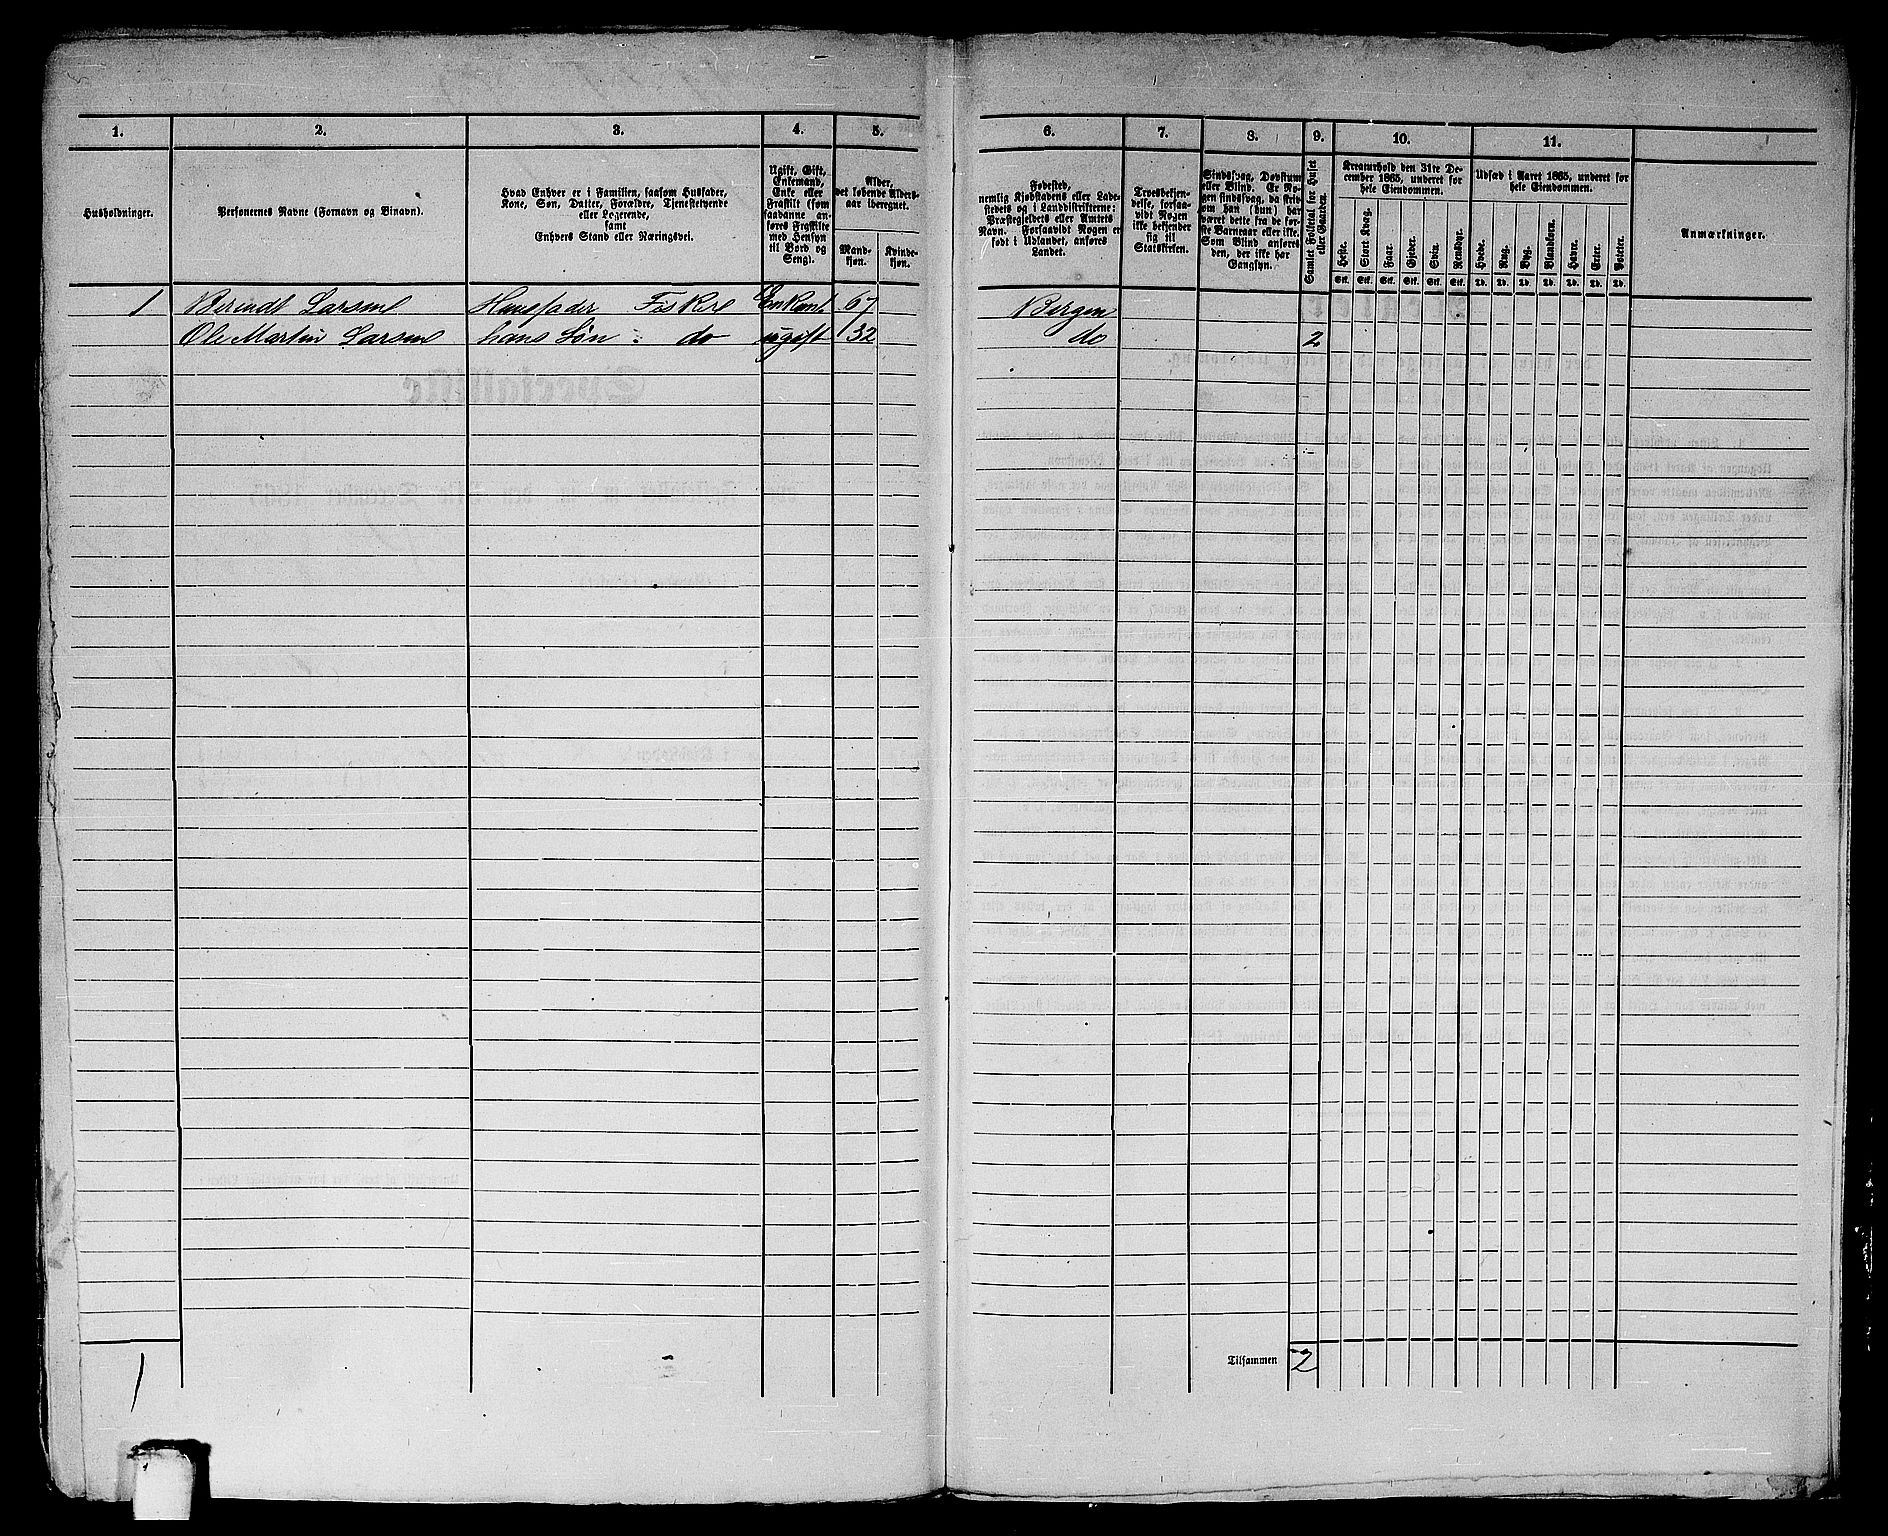 1.
2.
3.
4.
5.
Husholdninger.
Personernes Navne (Fornavn og Binavn).
Hvad Enhver er i Familien, saasom Husfader,
Kone, Søn, Datter, Forældre, Tjenestetyende
eller Logerende,
samt
Enhvers Stand eller Næringsvei.
Ugift, Gift,
Enkemand,
Enke eller
Fraskilt (som
saadanne an-
føres Fraskilte
med Hensyn
til Bord og
Seng).
Alder,
det løbende Alders-
aar iberegnet.
Mand-
kjøn.
Kvinde-
kjøn.
1 Berendt Larsen Huusfader Fisker Enkem. 67
Ole Martin Larsen hans Søn : do ugift 32
1
6.
7.
8.
9.
10.
11.
Fødested,
nemlig Kjøbstadens eller Lade-
stedets og i Landdistrikterne:
Præstegjeldets eller Amtets
Navn. Forsaavidt Nogen er
født i Udlandet, anføres
Landet.
Troesbekjen-
delse, forsaa-
vidt Nogen
ikke bekjender
sig til
Statskirken.
Sindssvag, Døvstum
eller Blind. Er No-
gen sindssvag, da skriv
om han (hun) har
været dette fra de før-
ste Barneaar eller ikke.
Som Blind anføres
den, der ikke har
Gangsyn.
Samlet Folketal for Huset
eller Gaarden.
Kreaturhold den 31te De-
cember 1865, underet for
hele Eiendommen.
Heste.
Stort Kvæg.
Faar.
Gjeder.
Svin.
Rensdyr.
Stk. Stk. Stk. Stk. Stk. Stk.
Udsæd i Aaret 1865, underet for
hele Eiendommen.
Hvede.
Rug.
Byg.
Blandkorn.
Havre.
Erter.
Poteter.
Td. Td. Td. Td. Td. Td. Td.
Anmærkninger.
Bergen
do 2
Tilsammen 2